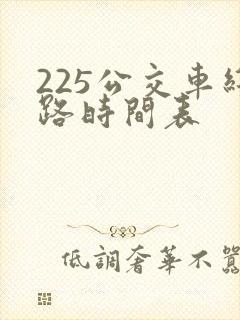 225公交車線
路時間表
低調奢華不囂